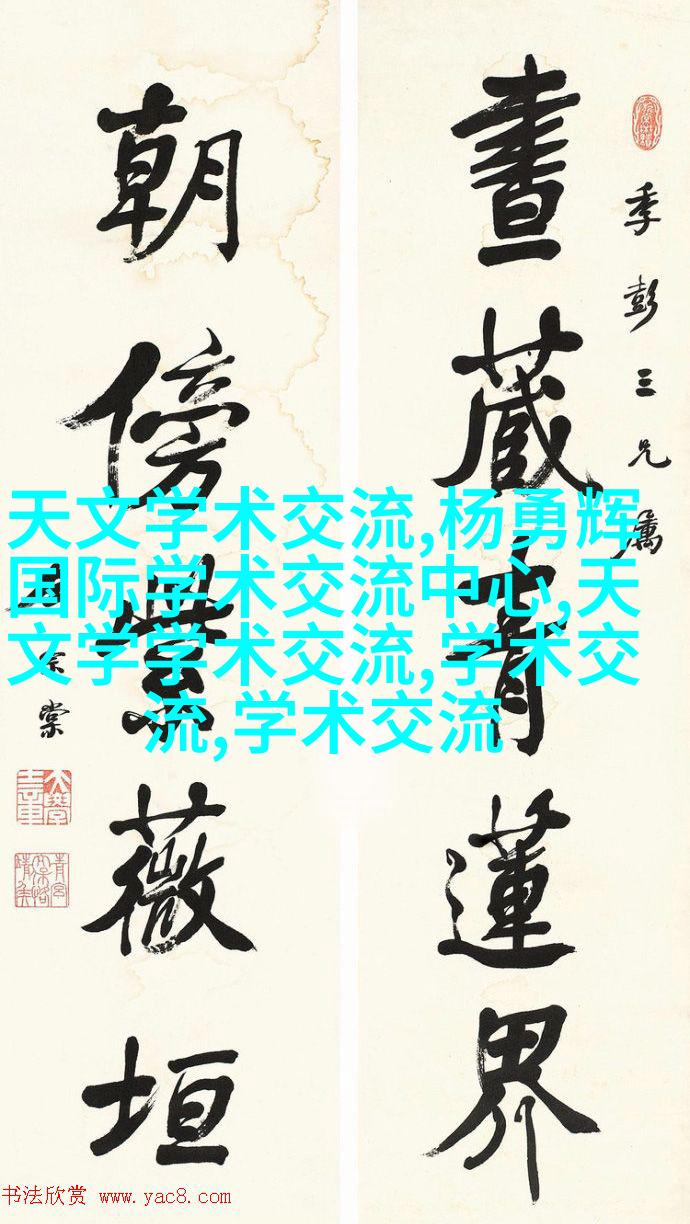 季彭三兄属
書藏青蓮界
朝傍紫薇垣
左宗棠
天文学术交流,杨勇辉
国际学术交流中心,天
文学学术交流,学术交
流,学术交流
书法欣赏 www.yac8.com